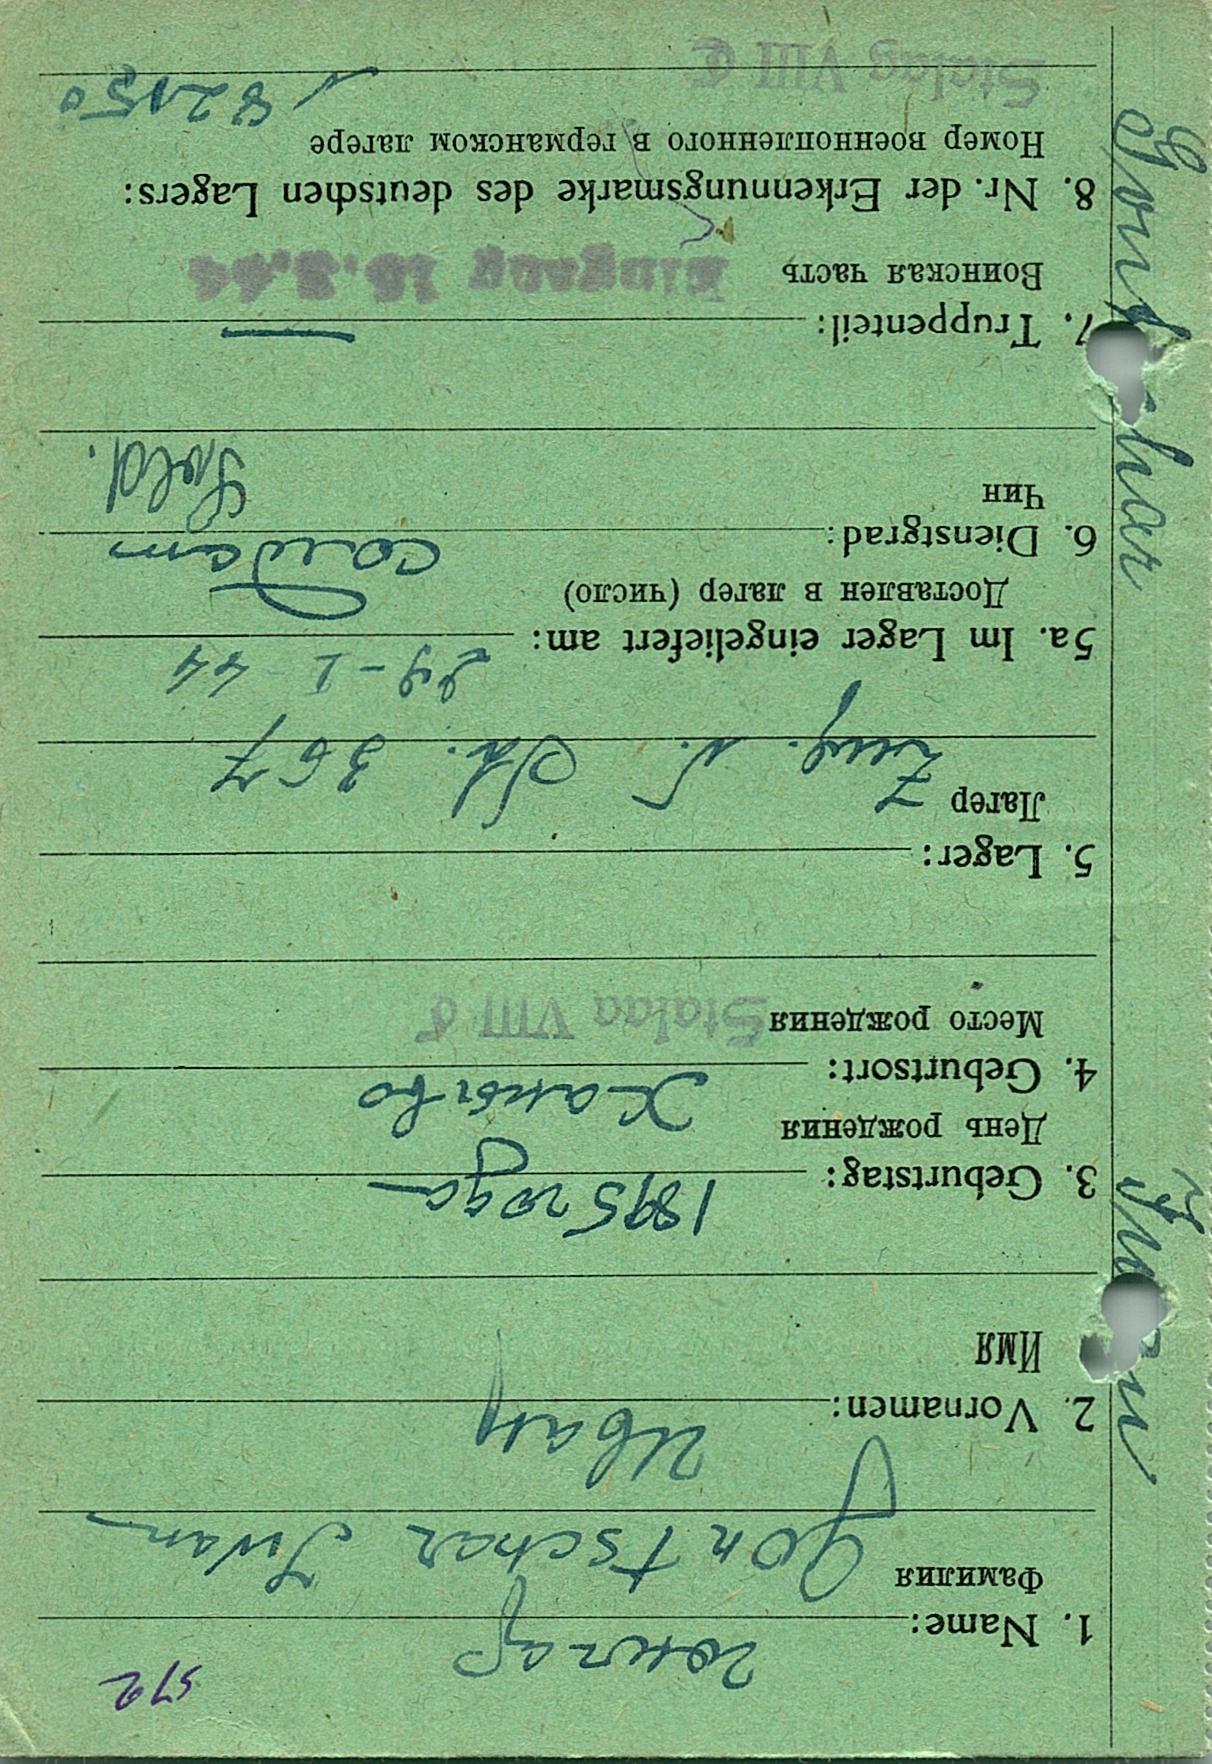 512
1. Name: гончар
Фамилия
Gontschar Iwan
2. Vornamen: Иван
Имя
3. Geburtstag: 1895 года
День рождения
4. Geburtsort:
Место рождения
Stalag VIII C
5. Lager:
Лагер
Zug. v. St. 367
5a. Im Lager eingeliefert am: 29-1 44
Доставлен в лагер (число)
6. Dienstgrad: солдат
Чин
Sold.
7. Truppenteil: —
Воинская часть
Eingang
8. Nr. der Erkennungsmarke des deutschen Lagers:
Номер военнопленного в германском лагере
82150
Stalag VIII C
Gontschar
Iwan